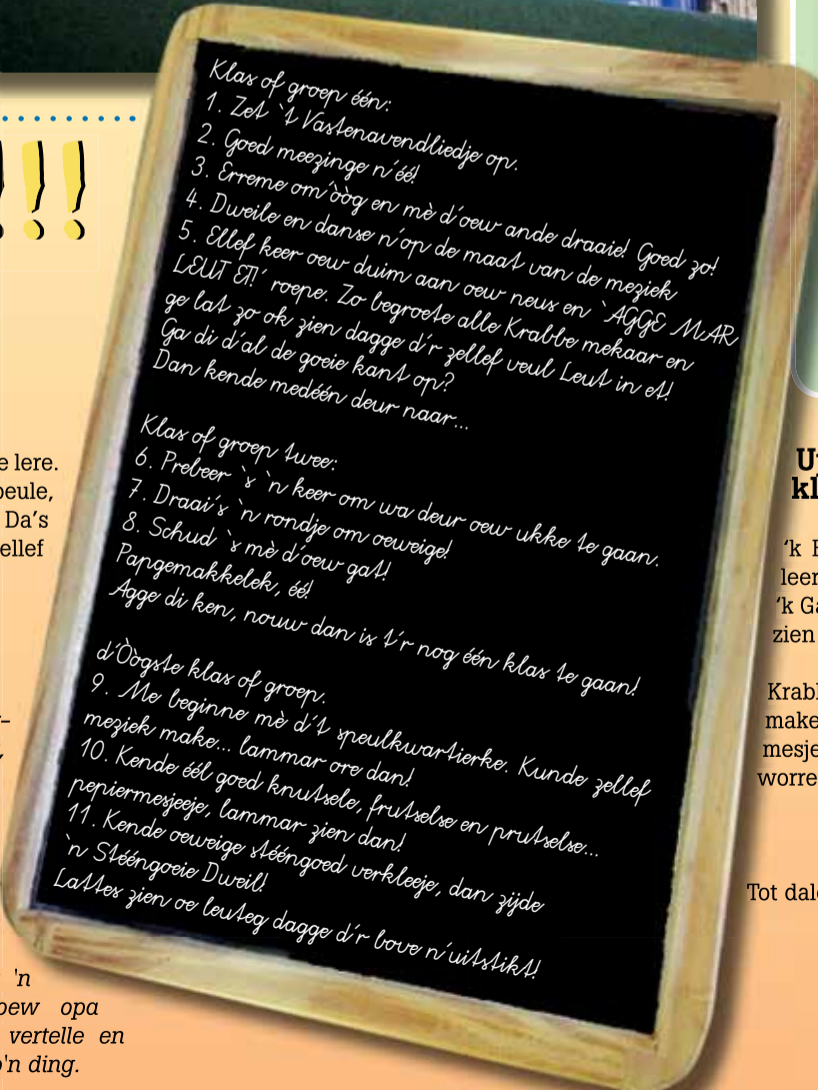 !!!
e lere.
peule,
Da's
ellef
'n
oew opa
vertelle en
'n ding.
Klas of groep één:
1. Zet `t Vastenavendliedje op.
2. Goed meezinge n´éé!
3. Erreme om´òòg en mè d´oew ande draaie! Goed zo!
4. Dweile en danse n´op de maat van de meziek
5. Ellef keer oew duim aan oew neus en `AGGE MAR
LEUT ET!´ roepe. Zo begroete alle Krabbe mekaar en
ge lat zo ok zien dagge d´r zellef veul Leut in et!
Ga di d´al de goeie kant op?
Dan kende medéén deur naar...
Klas of groep twee:
6. Prebeer `s `n keer om wa deur oew ukke te gaan.
7. Draai´s `n rondje om oeweige!
8. Schud `s mè d´oew gat!
Papgemakkelek, éé!
Agge di ken, nouw dan is t´r nog één klas te gaan!
d´Òògste klas of groep.
9. Me beginne mè d´t speulkwartierke. Kunde zellef
meziek make... lammar ore dan!
10. Kende éél goed knutsele, frutselse en prutselse...
pepiermesjeeje, lammar zien dan!
11. Kende oeweige stééngoed verkleeje, dan zijde
`n Stééngoeie Dweil!
Lattes zien oe leuteg dagge d´r bove n´uitstikt!
kl
'k
leer
'k Ga
zien
Krabl
make
mesje
worre
Tot dal